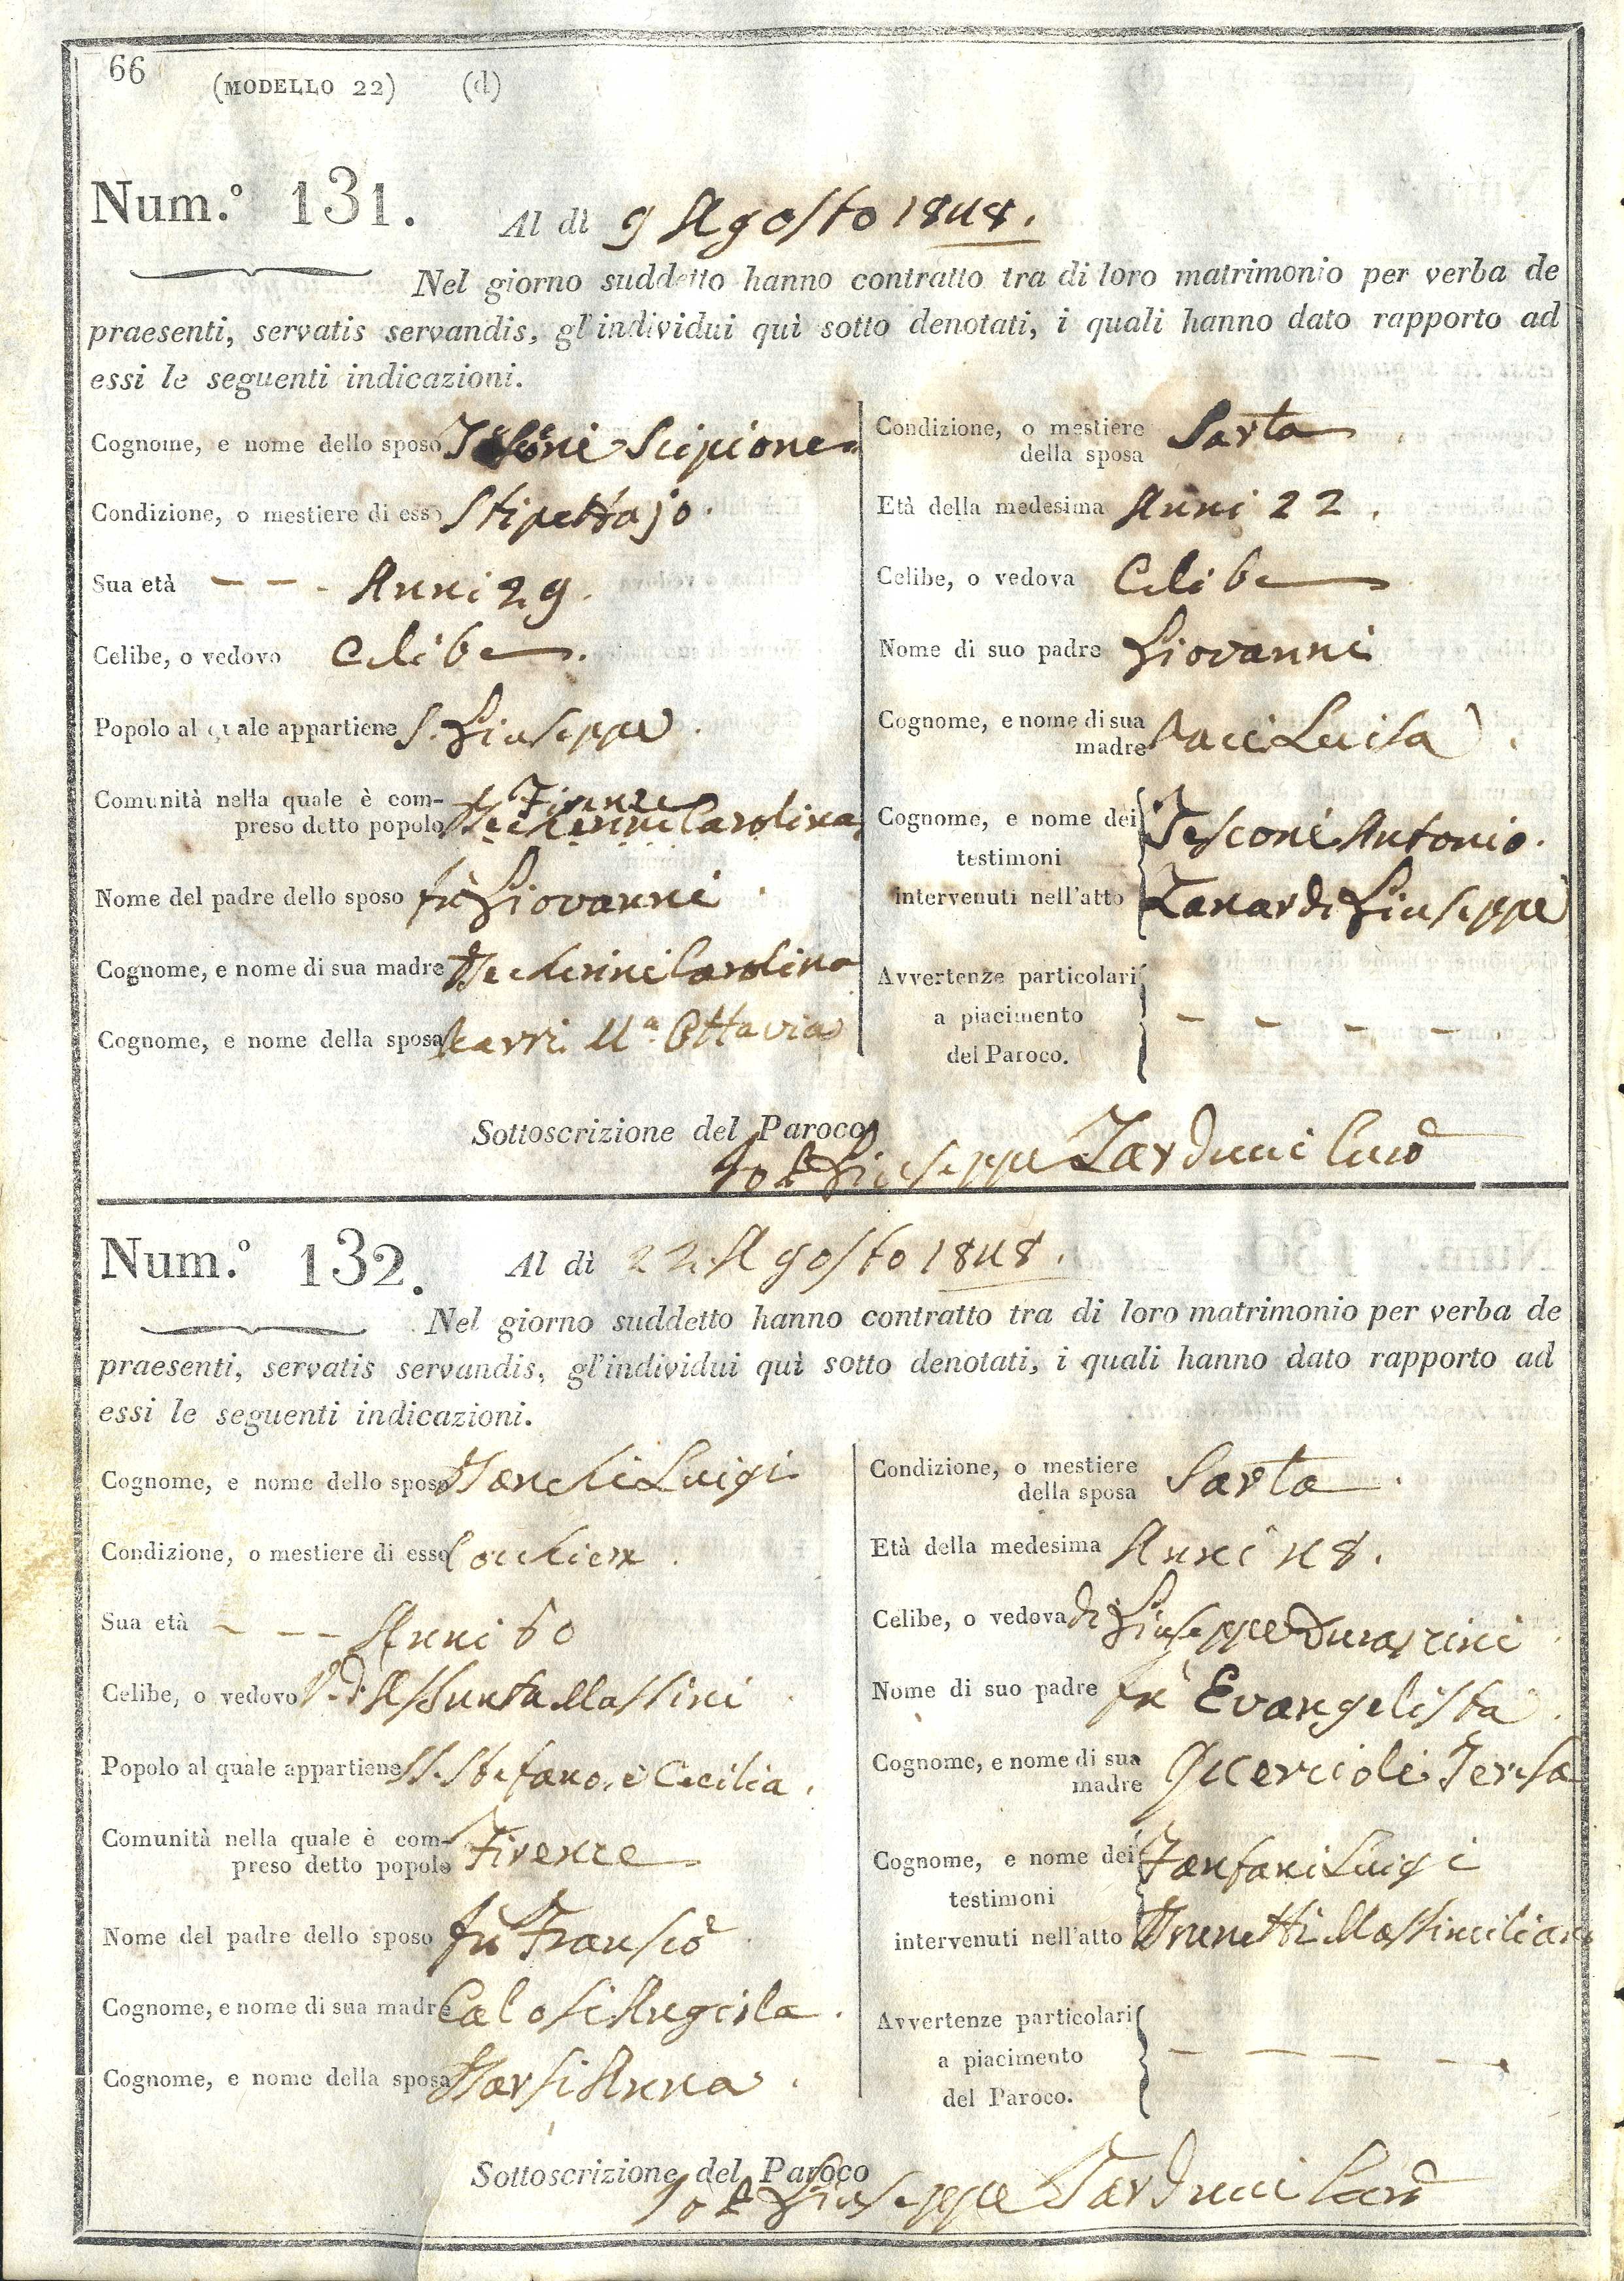 66
(MODELLO 22) (d)
Num.º 131. Al dì 9 Agosto 1848.
Nel giorno suddetto hanno contratto tra di loro matrimonio per verba de
praesenti, servatis servandis, gl'individui quì sotto denotati, i quali hanno dato rapporto ad
essi le seguenti indicazioni.
Cognome, e nome dello sposo Scipione
Condizione, o mestiere di esso Stipettajo.
Sua età - - - Anni 29.
Celibe, o vedovo Celibe.
Popolo al quale appartiene S. Giuseppe.
Comunità nella quale è com- Firenze
preso detto popolo Carolina
Nome del padre dello sposo fù Giovanni.
Cognome, e nome di sua madre Carolina
Cognome, e nome della sposa Mª Ottavia
Condizione, o mestiere Sarta
della sposa
Età della medesima Anni 22.
Celibe, o vedova Celibe
Nome di suo padre Giovanni
Cognome, e nome di sua
madre Luisa.
Cognome, e nome dei Tesconi Antonio.
testimoni
intervenuti nell'atto Zanardi Giuseppe
Avvertenze particolari
a piacimento - - - -
del Paroco.
Sottoscrizione del Paroco
Io P. Giuseppe Tarducci
Num.º 132. Al dì 22. Agosto 1848.
Nel giorno suddetto hanno contratto tra di loro matrimonio per verba de
praesenti, servatis servandis, gl'individui quì sotto denotati, i quali hanno dato rapporto ad
essi le seguenti indicazioni.
Cognome, e nome dello sposo Luigi
Condizione, o mestiere di esso Cocchiere.
Sua età - - - Anni 60
Celibe, o vedovo V. di Assunta Massini.
Popolo al quale appartiene SS. Stefano, e Cecilia.
Comunità nella quale è com- Firenze
preso detto popolo
Nome del padre dello sposo fù
Cognome, e nome di sua madre Calosi Angiola.
Cognome, e nome della sposa Anna.
Condizione, o mestiere Sarta.
della sposa
Età della medesima Anni 48.
Celibe, o vedova di Giuseppe
Nome di suo padre fù Evangelista.
Cognome, e nome di sua
madre Quercioli Teresa
Cognome, e nome dei Fanfani Luigi
testimoni
intervenuti nell'atto Brunetti Massimiliano
Avvertenze particolari
a piacimento - - - -
del Paroco.
Sottoscrizione del Paroco
Io P. Giuseppe Tarducci